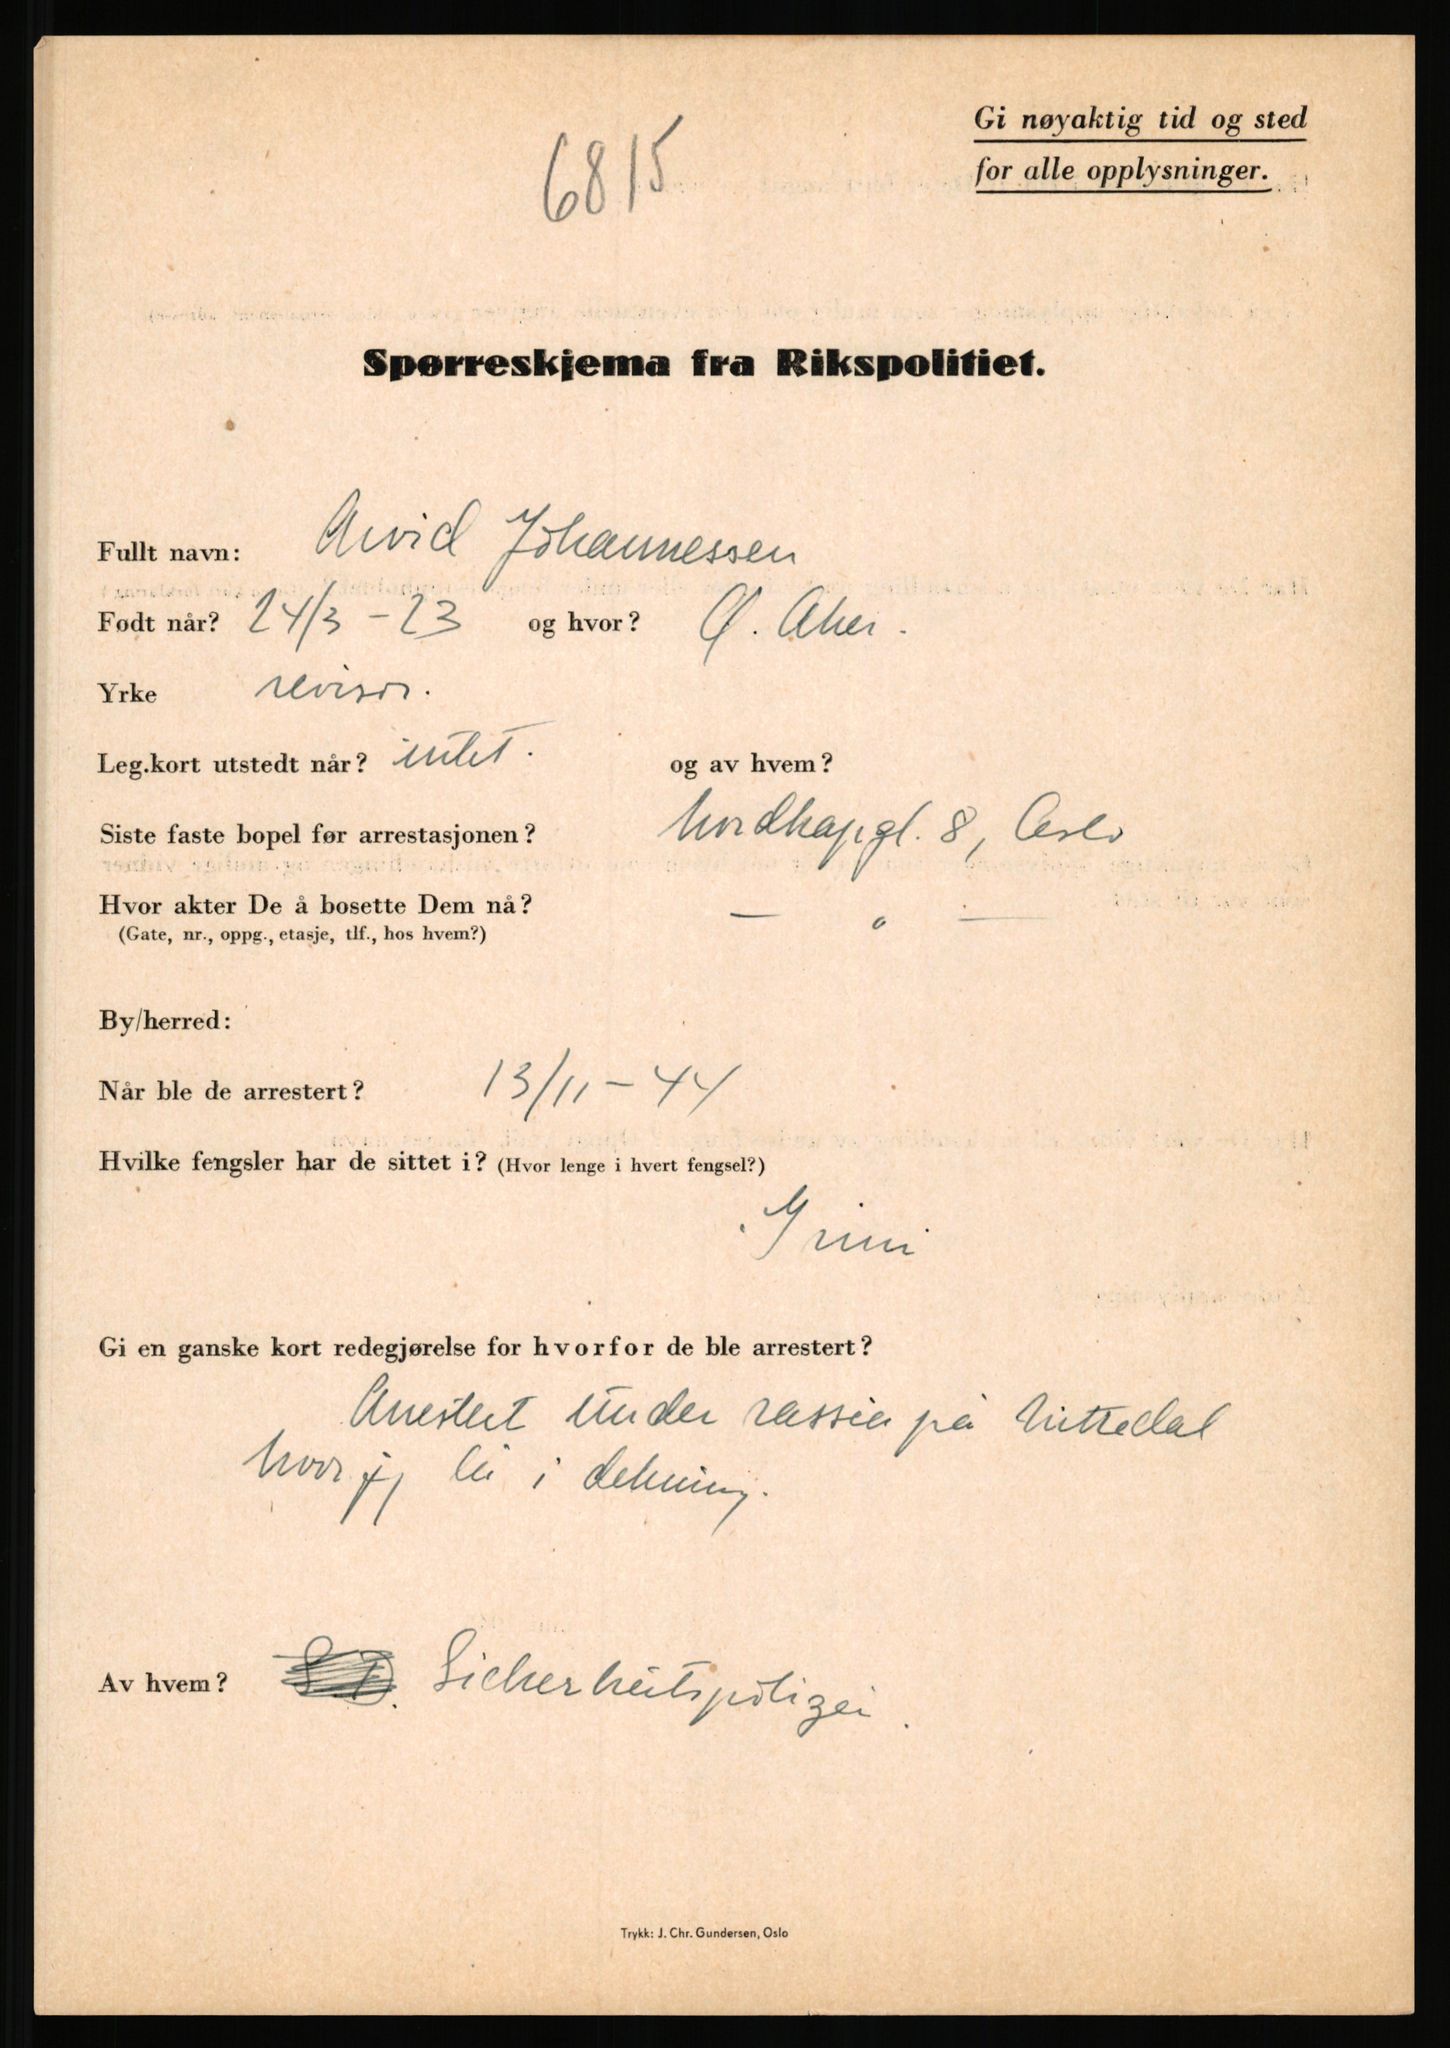 Gi nøyaktig tid og sted
for alle opplysninger.
6815
Spørreskjema fra Rikspolitiet.
Fullt navn: Arvid Johannessen
Født når? 24/3 - 23 og hvor? Ø. Aker.
Yrke revisor.
Leg.kort utstedt når? intet. og av hvem?
Siste faste bopel før arrestasjonen? Nordkapgt. 8, Oslo
Hvor akter De å bosette Dem nå? — " —
(Gate, nr., oppg., etasje, tlf., hos hvem?)
By/herred:
Når ble de arrestert? 13/11 - 44
Hvilke fengsler har de sittet i? (Hvor lenge i hvert fengsel?)
Grini
Gi en ganske kort redegjørelse for hvorfor de ble arrestert?
Arrestert under rassia på Nittedal
hvor jeg lå i dekning.
Av hvem? Sicherheitspolizei.
Trykk: J. Chr. Gundersen, Oslo